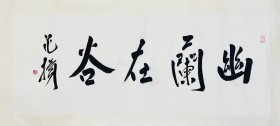 幽蘭在谷